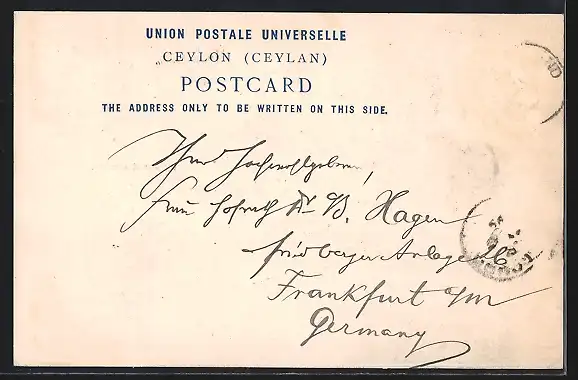 UNION POSTALE UNIVERSELLE
CEYLON (CEYLAN)
POSTCARD
THE ADDRESS ONLY TO BE WRITTEN ON THIS SIDE.
Hochwohlgeboren,
Frau Hofrath Dr B. Hagen
Friedberger Anlage
Frankfurt a/m
Germany